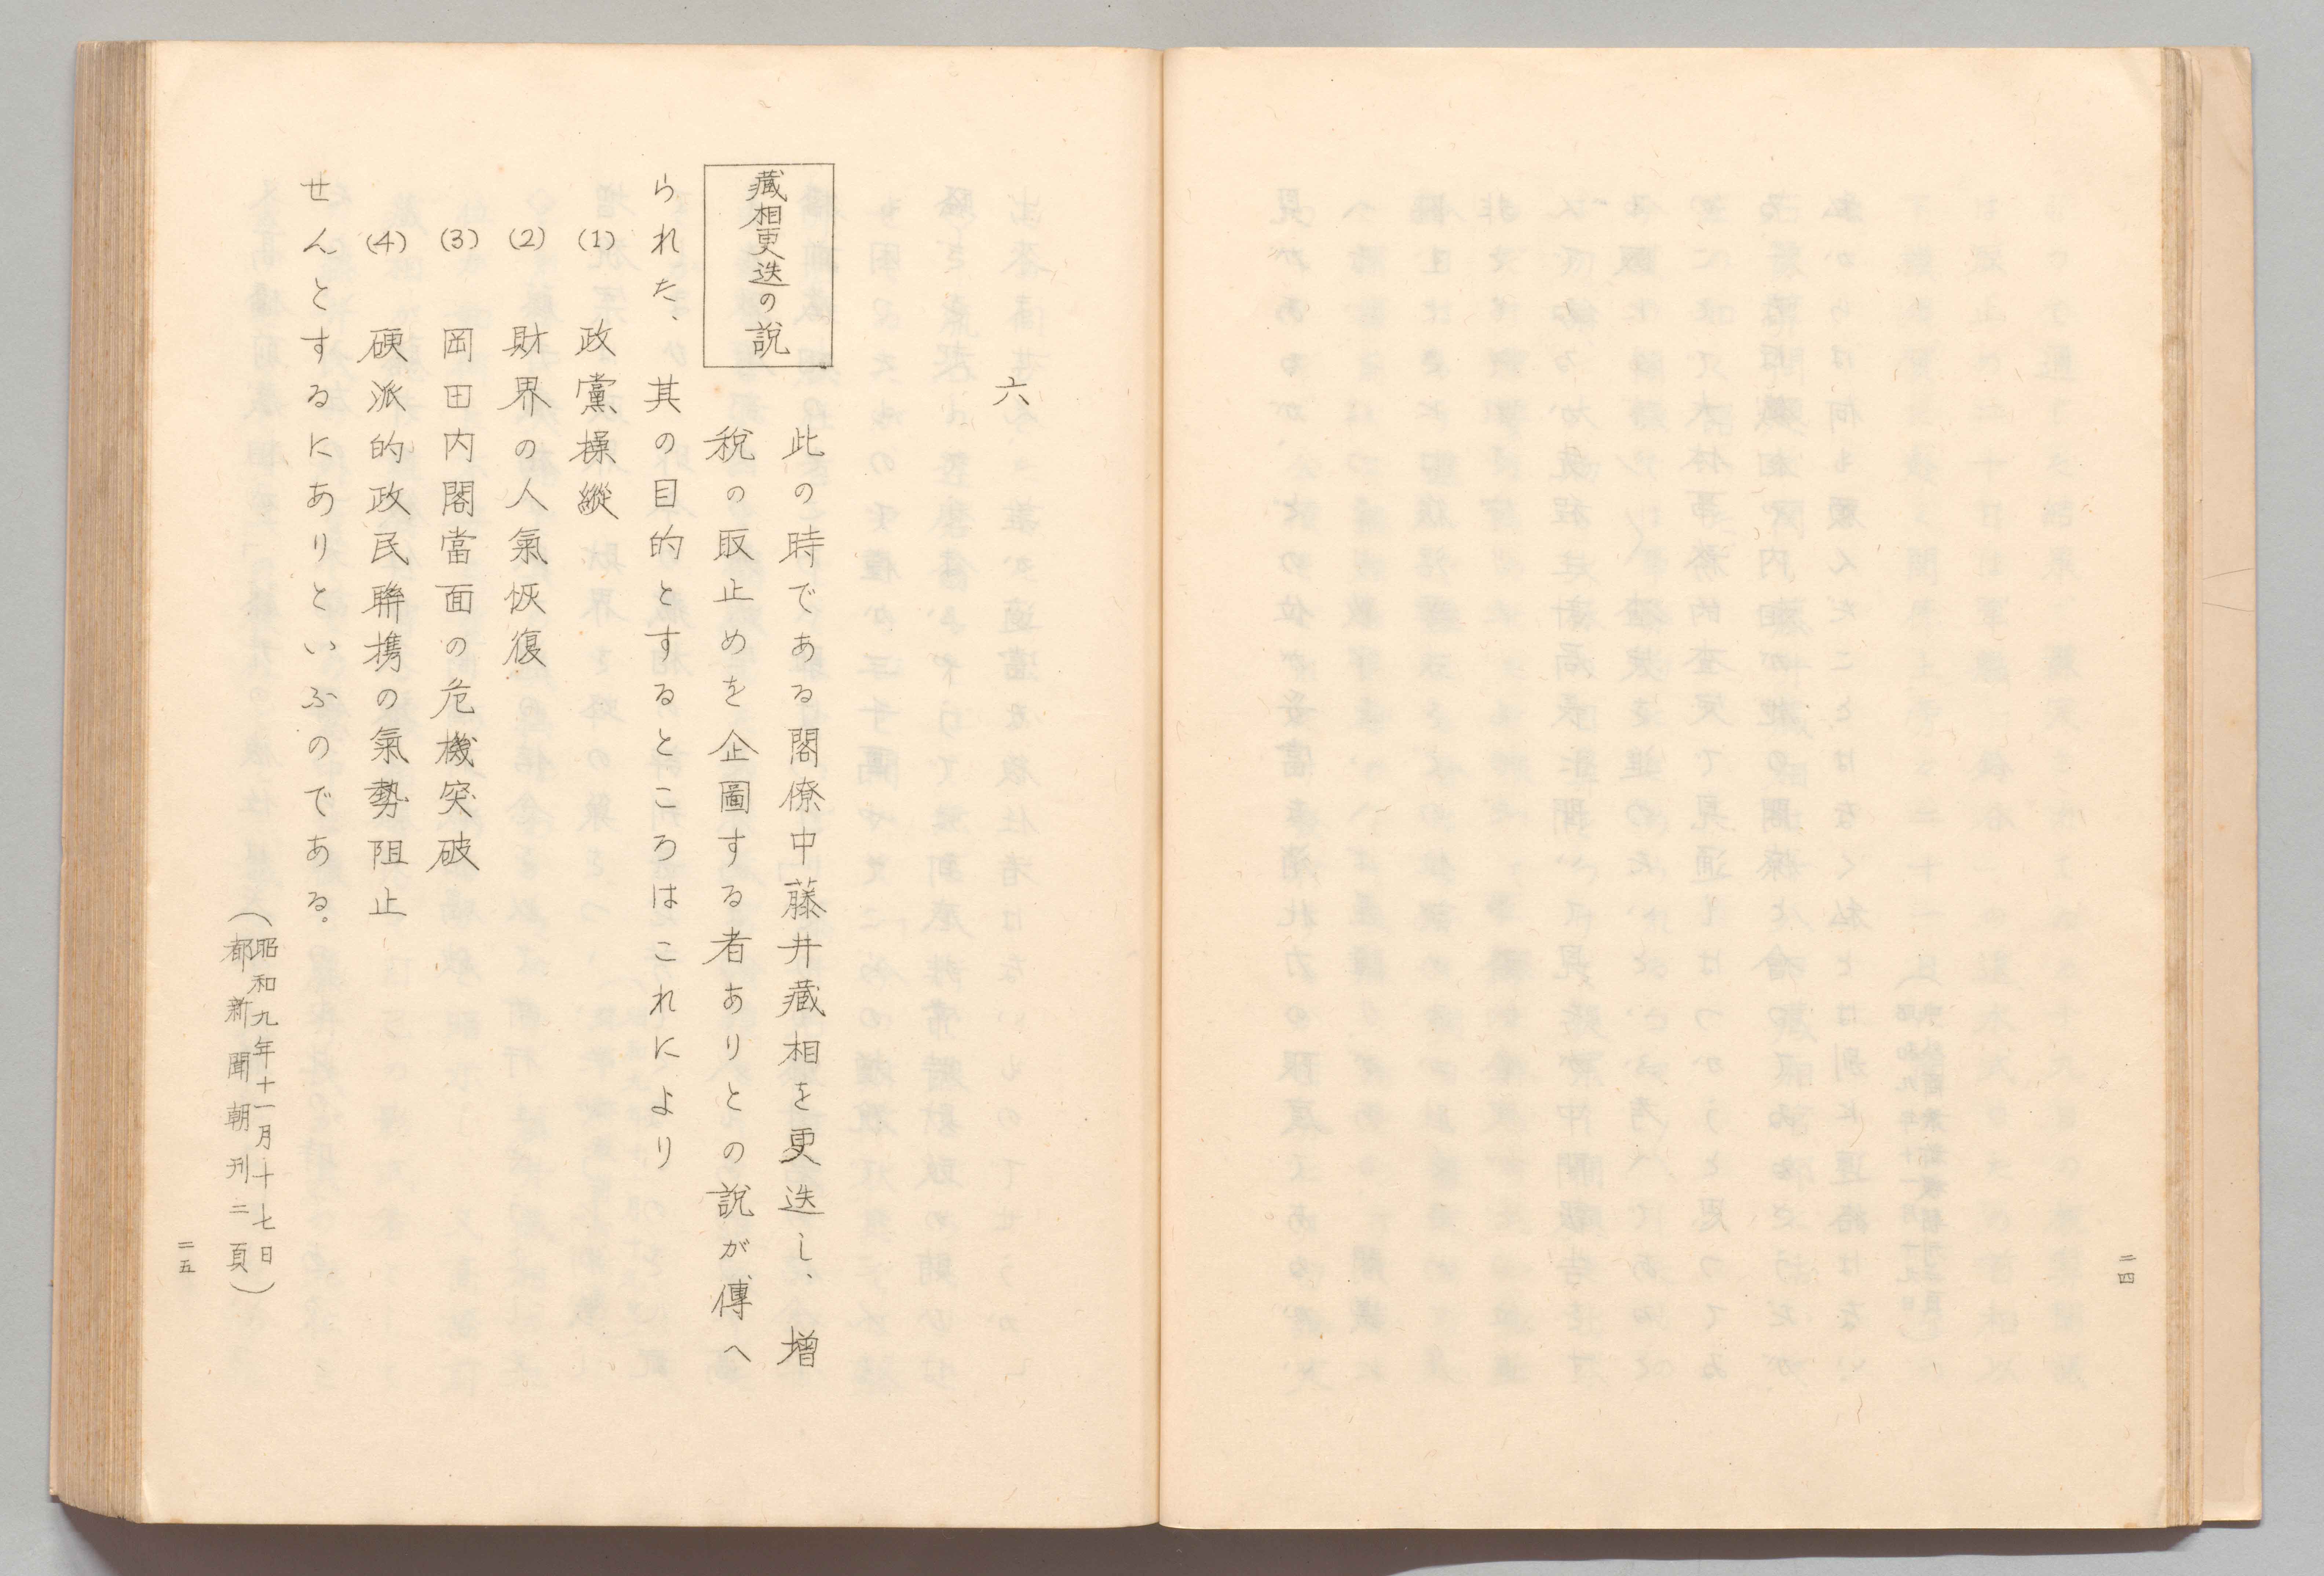 二四
六
藏相更迭の説
此の時である閣僚中藤井藏相を更迭し、増
税の取止めを企圖する者ありとの説が傳へ
られた、其の目的とするところはこれにより
(1) 政黨操縱
(2) 財界の人氣恢復
(3) 岡田内閣當面の危機突破
(4) 硬派的政民聯携の氣勢阻止
せんとするにありといふのである。
（昭和九年十一月十七日
都新聞朝刊二頁）
二五